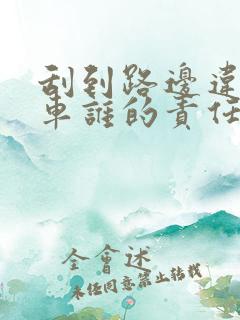 刮到路邊違
車誰的責任
全會述
未任同意禁止轉載